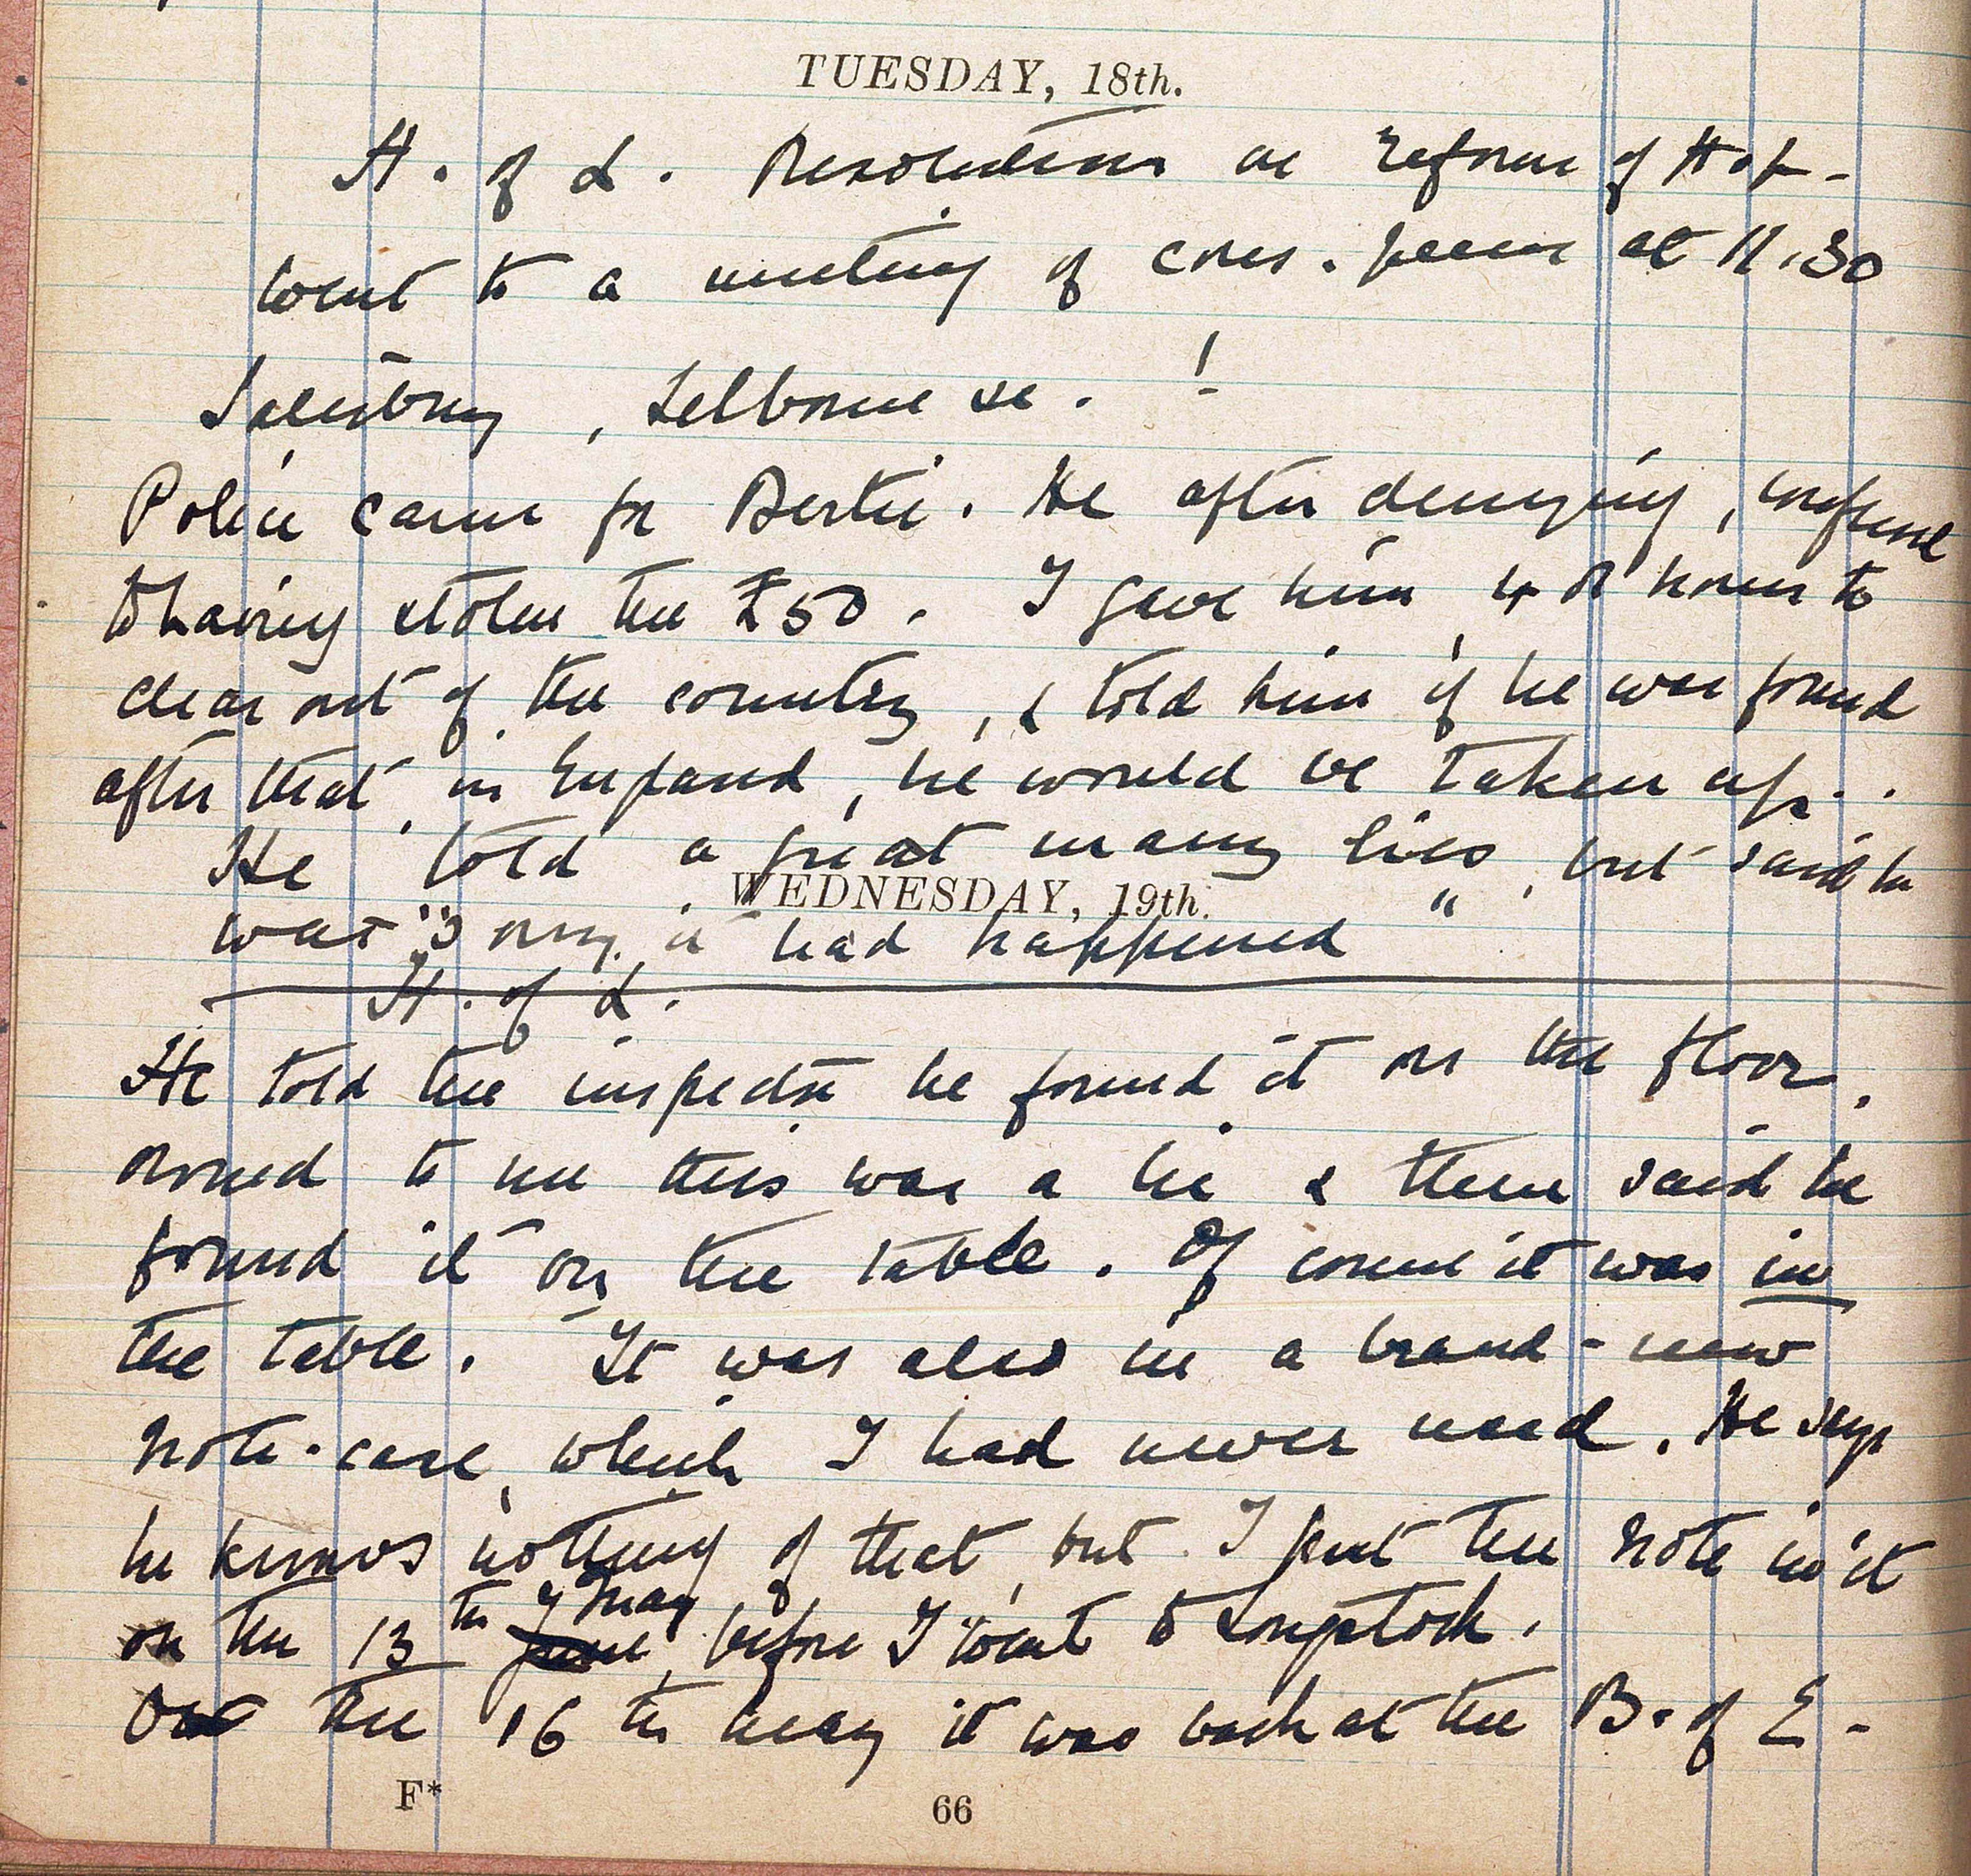 TUESDAY, 18th.
H. of L. Resolution on reform of H of L-
Went to a meeting of cons. peers at 11.30
Salisbury, Selborne &c. !
Police came for Bertie. He after denying, confessed
to having stolen the £50. I gave him 48 hours to
clear out of the country, & told him if he was found
after that, in England, he would be taken up..
He told a great many lies, but said he
WEDNESDAY, 19th.
was "sorry it had happened"
H. of L.
He told the inspector he found it on the floor,
owned to me this was a lie & then said he
found it on the table. Of course it was in
the table. It was also in a brand-new
note-case which I had never used. He says
he knows nothing of that, but I put the note in it
on the 13th of May June, before I went to Longstock.
On the 16th May it was back at the B. of E-
F* 66